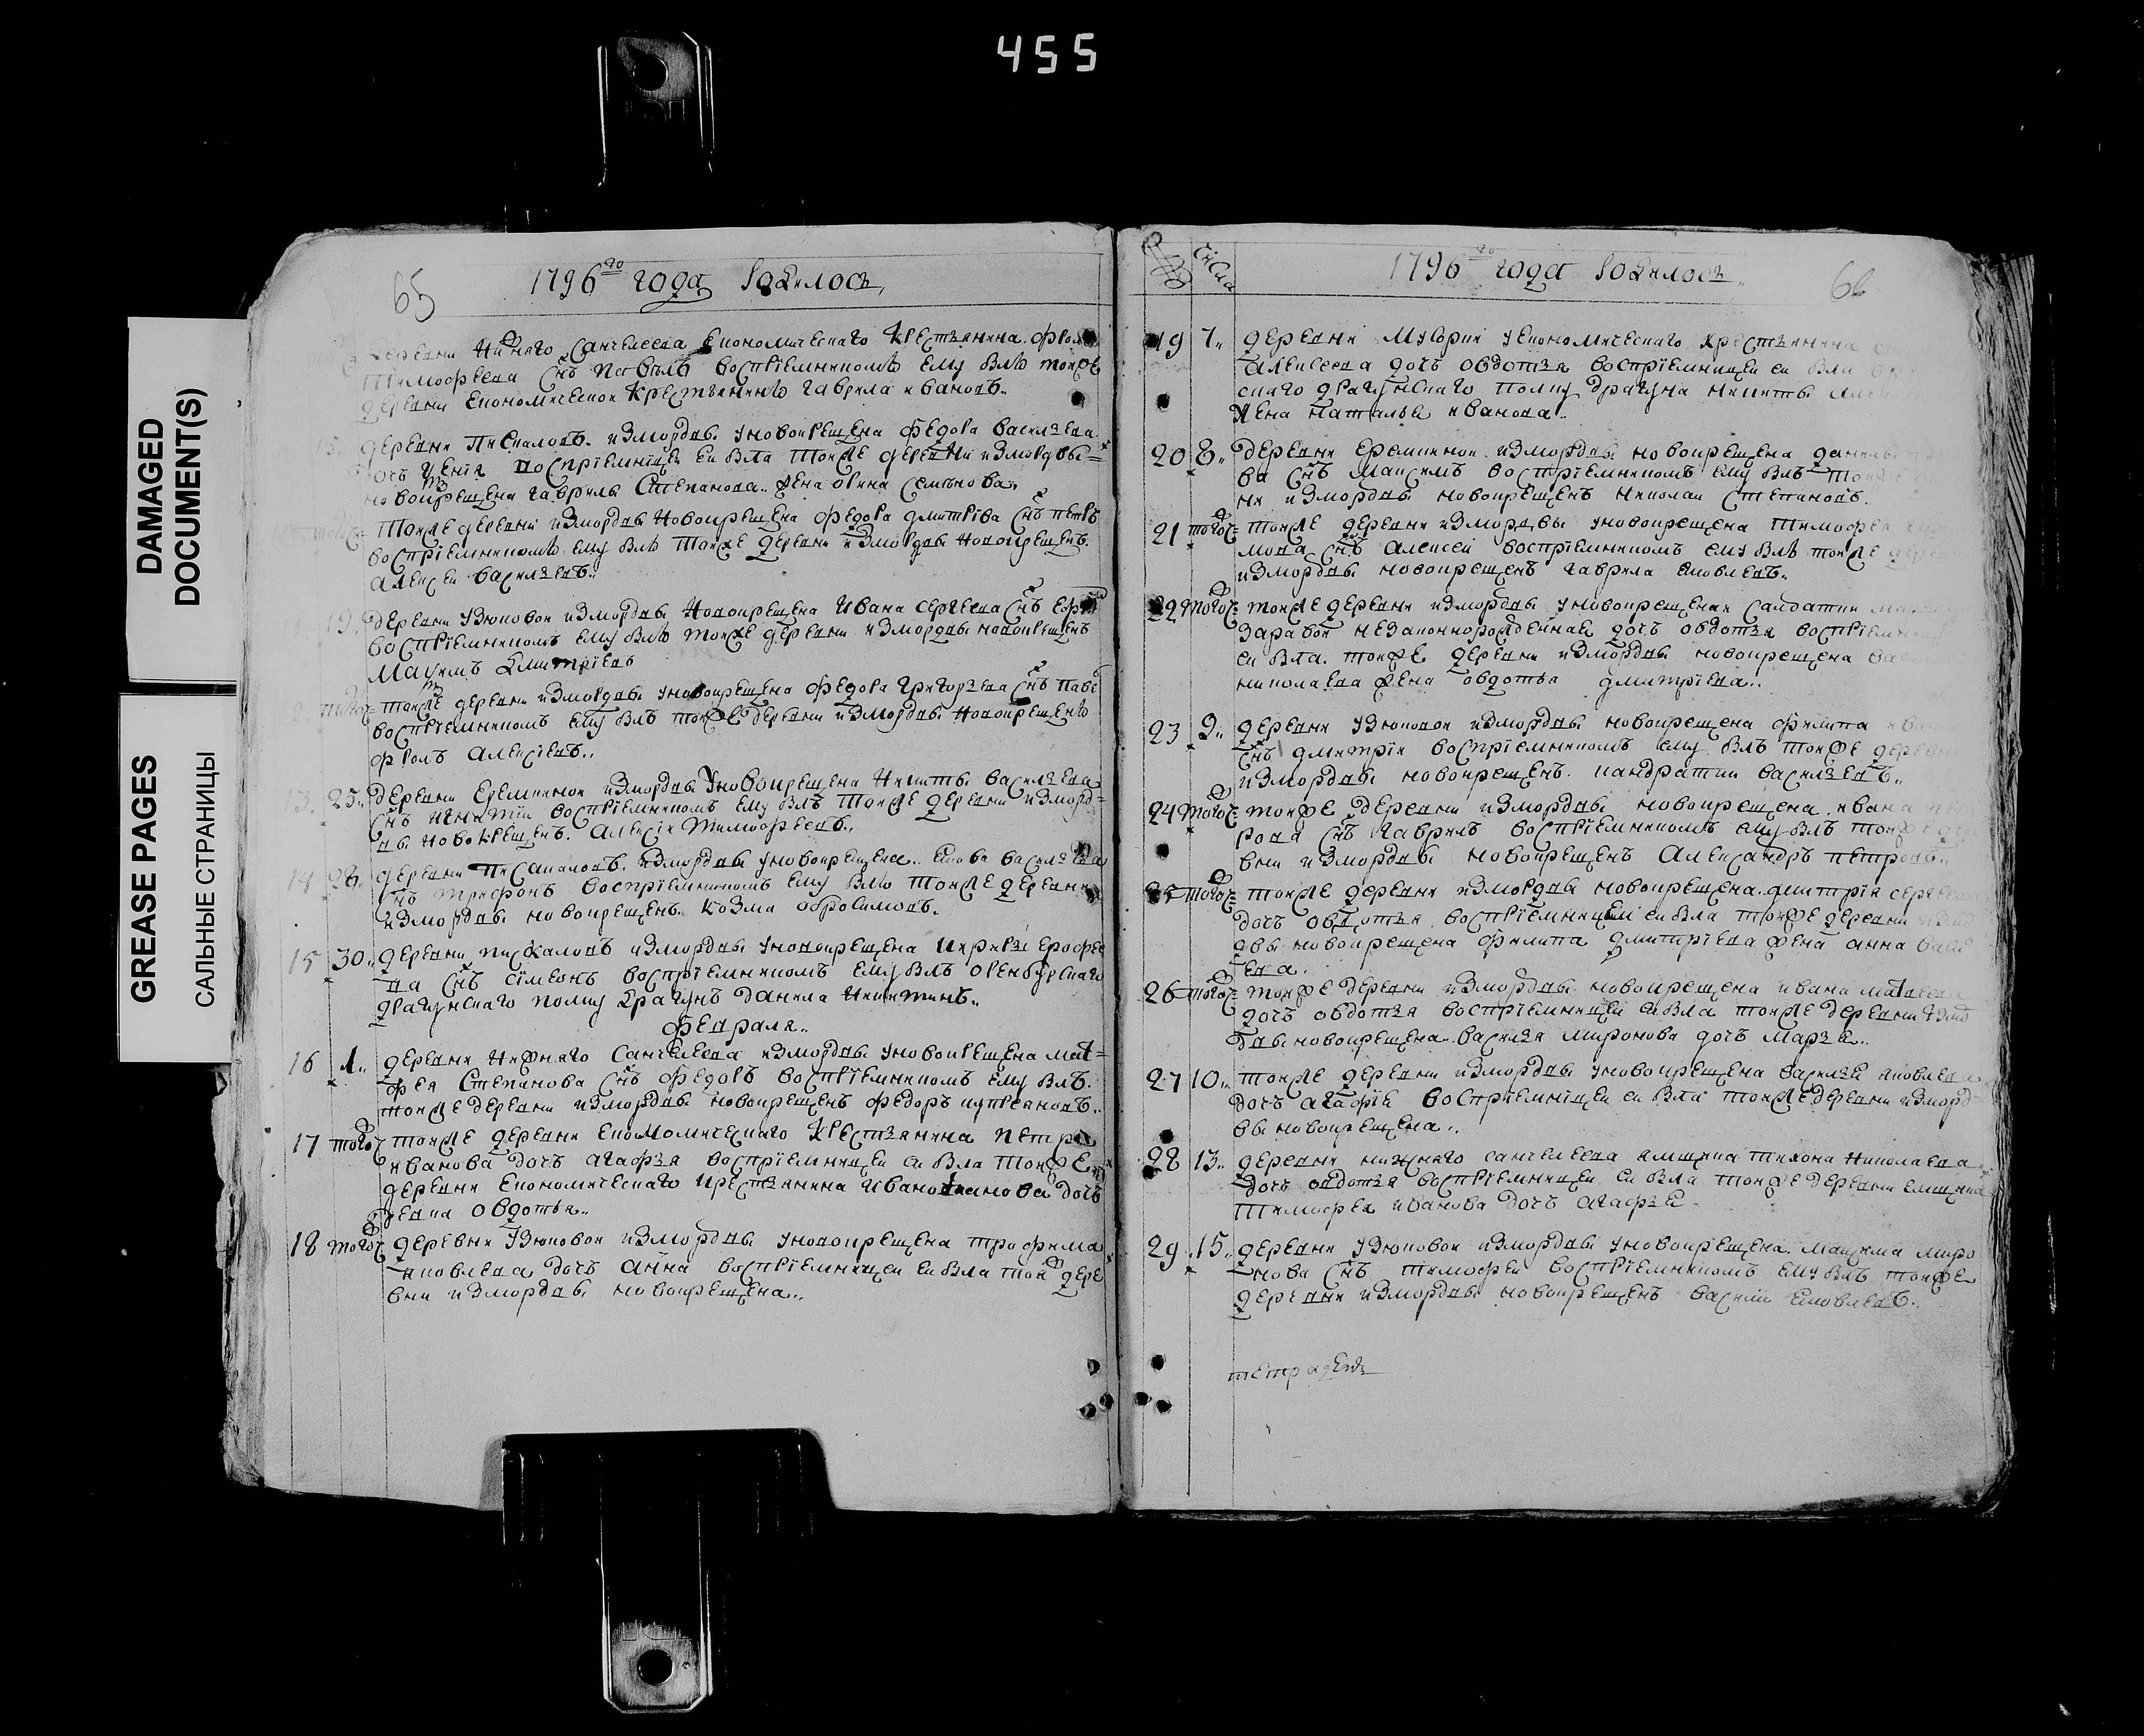 455
DAMAGED
DOCUMENT(S)
GREASE PAGES
САЛЬНЫЕ СТРАНИЦЫ
65
1796го года родилось
деревни Нижняго Санчелеева економическаго крестьянина
Тимофеева снъ Павелъ воспрїемникомъ ему былъ тоиже
деревни економическои крестьянинъ гаврила ивановъ
15 деревни Пискаловъ измордвы уновокрещена федора васильева
дочь воспрїемницеи ей была тоиже деревни измордвы
новокрещена гаврилы Степанова жена орина семьнова
тогож тоиже деревни измордвы новокрещена федора дмитрїева снъ петръ
воспрїемникомъ ему былъ тоиже деревни измордвы новокрещенъ
алексеи васильевъ
19 деревни Узюковои измордвы новокрещена Ивана сергеева снъ
воспрїемникомъ ему былъ тоиже деревни измордвы новокрещенъ
Мауимъ Дмитрїевъ
тогож тоиже деревни измордвы уновокрещена федора григорьева снъ
воспрїемникомъ ему былъ тоиже деревни измордвы новокрещенъ
фролъ алексїевъ
13 25 деревни Еремкинои измордвы уновокрещена Никиты васильева
снъ игнатїи воспрїемникомъ ему былъ тоиже деревни измордвы
новокрещенъ алексїи тимофеевъ
14 28 деревни Пискаловъ измордвы уновокрещена васильева
снъ трифонъ воспрїемникомъ ему былъ тоиже деревни
измордвы новокрещенъ козма обросимовъ
15 30 деревни пискаловъ измордвы уновокрещена ерофее
ва снъ сїмеонъ воспрїемникомъ ему былъ оренбурскаго
драгунскаго полку драгунъ данила Никитинъ
февраля
16 1 деревни Нижняго Санчелеева измордвы уновокрещена мат
фея Степанова снъ федоръ воспрїемникомъ ему былъ
тоиже деревни измордвы новокрещенъ федоръ купреяновъ
17 тогож тоиже деревни економическаго крестьянина петра
иванова дочь агафья воспрїемницеи ей была тоиже
деревни економическаго крестьянина дочь
девка овдотья
18 тогож деревни Узюковои измордвы уновокрещена трофима
яковлева дочь анна воспрїемницеи ей была тои дере
вни измордвы новокрещена
числа
1796го года родилось
66
19 7 деревни Мусорки уекономическаго крестьянина
алексеева дочь овдотья воспрїемницеи ей была
скаго драгунскаго полку драгуна никиты
жена наталья иванова
20 8 деревни Еремкинои измордвы новокрещена данилы
ва снъ Максимъ воспрїемникомъ ему былъ тоиже
ни измордвы новокрещенъ николаи степановъ
21 тогож тоиже деревни измордвы уновокрещена тимофея
мова снъ алексеи воспрїемникомъ ему былъ тоиже дере
измордвы новокрещенъ гаврила яковлевъ
22 тогож тоиже деревни измордвы уновокрещенки салдатки
заравои незаконнорожденная дочь овдотья
ей была тоиже деревни измордвы новокрещена
николаева жена овдотья дмитрїева
23 9 деревни Узюковои измордвы новокрещена филипа
снъ дмитрїи воспрїемникомъ ему былъ тоиже
измордвы новокрещенъ кандратии васильевъ
24 тогож тоиже деревни измордвы новокрещена ивана
рова снъ гаврилъ воспрїемникомъ ему былъ тоиже де
вни измордвы новокрещенъ александръ петровъ
25 тогож тоиже деревни измордвы новокрещена дмитрїя сергеева
дочь овдотья воспрїемницеи ей была тоиже деревни измор
двы новокрещена филипа дмитрїева жена анна
ева
26 тогож тоиже деревни измордвы новокрещена ивана матвеева
дочь овдотья воспрїемницеи ей была тоиже деревни измо
двы новокрещена василья миронова дочь марья
27 10 тоиже деревни измордвы уновокрещена василья яковлева
дочь агафїя воспрїемницеи ей была тоиже деревни измор
вы новокрещена
28 13 деревни нижняго санчелеева ямщика тихона николаева
дочь овдотья воспрїемницеи ей была тоиже деревни ямщика
тимофея иванова дочь агафья
29 15 деревни Узюковои измордвы уновокрещена максима миро
нова снъ тимофеи воспрїемникомъ ему былъ тоиже
деревни измордвы новокрещенъ василїи яковлевъ